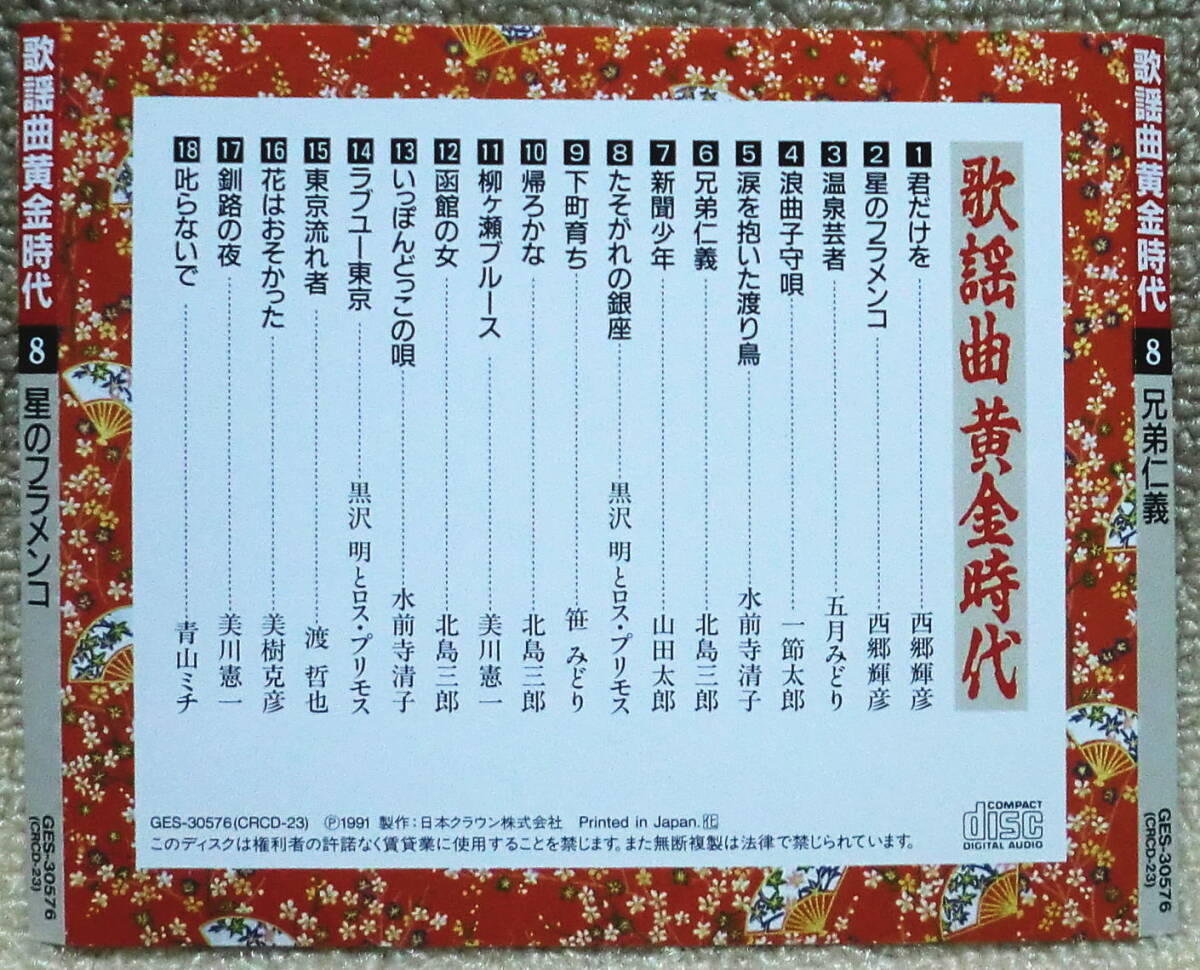 歌謡曲黄金時代
1 君だけを 西郷輝彦
2 星のフラメンコ 西郷輝彦
3 温泉芸者 五月みどり
4 浪曲子守唄 一節太郎
5 涙を抱いた渡り鳥 水前寺清子
6 兄弟仁義 北島三郎
7 新聞少年 山田太郎
8 たそがれの銀座 黒沢 明とロス・プリモス
9 下町育ち 笹 みどり
10 帰ろかな 北島三郎
11 柳ヶ瀬ブルース 美川憲一
12 函館の女 北島三郎
13 いっぽんどっこの唄 水前寺清子
14 ラブユー東京 黒沢 明とロス・プリモス
15 東京流れ者 渡 哲也
16 花はおそかった 美樹克彦
17 釧路の夜 美川憲一
18 叱らないで 青山ミチ
GES-30576(CRCD-23) Ⓟ1991 製作:日本クラウン株式会社 Printed in Japan.
このディスクは権利者の許諾なく賃貸業に使用することを禁じます。また無断複製は法律で禁じられています。
COMPACT
disc
DIGITAL AUDIO
歌謡曲黄金時代 8 兄弟仁義
GES-30576
(CRCD-23)
歌謡曲黄金時代 8 星のフラメンコ
GES-30576
(CRCD-23)